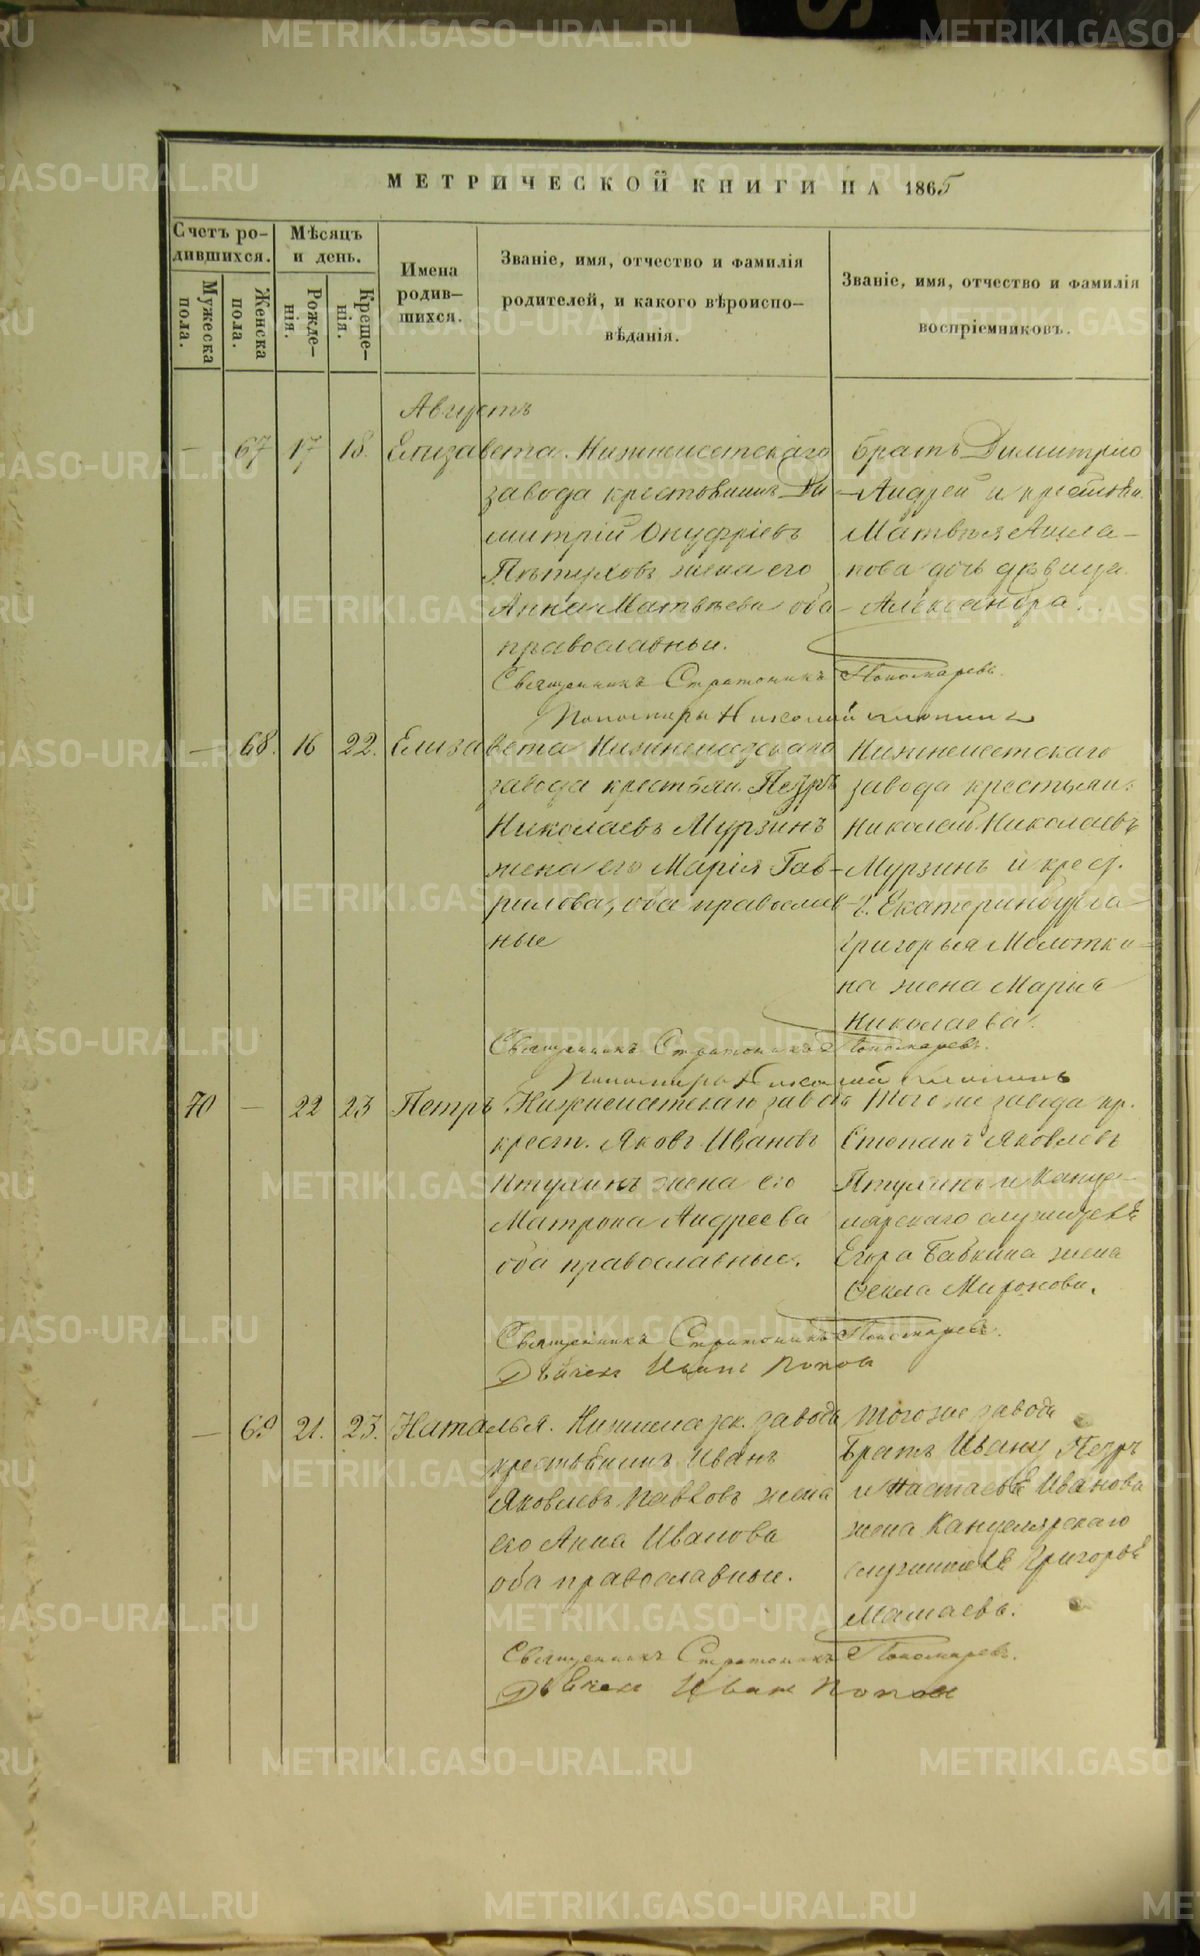 МЕТРИЧЕСКОЙ КНИГИ НА 1865
Счетъ ро-
дившихся.
Мужеска
пола.
Женска
пола.
Мѣсяцъ
и день.
Рожде-
нія.
Креще-
нія.
Имена
родив-
шихся.
Званіе, имя, отчество и фамилія
родителей, и какого вѣроиспо-
вѣданія.
Званіе, имя, отчество и фамилія
воспріемниковъ.
Августъ
— 67 17 18. Елизавета. Нижнеисетскаго
завода крестьянинъ Ди
митрій Онуфріевъ
Пѣтуховъ жена его
Анна Матвѣева оба
православныи.
Братъ Димитрію
Андрей и
Матвѣя
дочь дѣвица
Александра.
Священникъ Стратоникъ Пономаревъ.
Николай
— 68. 16 22. Елизавета Нижнеисетскаго
завода крестьян. Петръ
Николаевъ Мурзинъ
жена его Марія Гав-
рилова, оба православ-
ные
Нижнеисетскаго
завода крестьянин.
Николай Николаевъ
Мурзинъ и крест.
г. Екатеринбурга
Григорья Молотки-
на жена Марія
Николаева.
Священникъ Стратоникъ Пономаревъ.
Николай
70 — 22 23 Петръ Нижнеисетскаго завода
крест. Яковъ Ивановъ
Птухинъ жена его
Матрона Андреева
оба православные.
Того же завода кр.
Степанъ Яковлевъ
Птухинъ и Канце-
лярскаго служителя
Егора Бабкина жена
Ѳекла Миронова.
Священникъ Стратоникъ Пономаревъ.
Дьячекъ Иванъ Попов
— 69 21. 23. Наталья. завода
крестьянинъ Иванъ
Яковлевъ жена
его Анна Иванова
оба православные.
Того же завода
Братъ Ивану Петръ
и Настасья Иванова
жена Канцелярскаго
служителя Григорья
Мамаевъ.
Священникъ Стратоникъ Пономаревъ.
Дьячекъ Иван Попов
METRIKI.GASO-URAL.RU